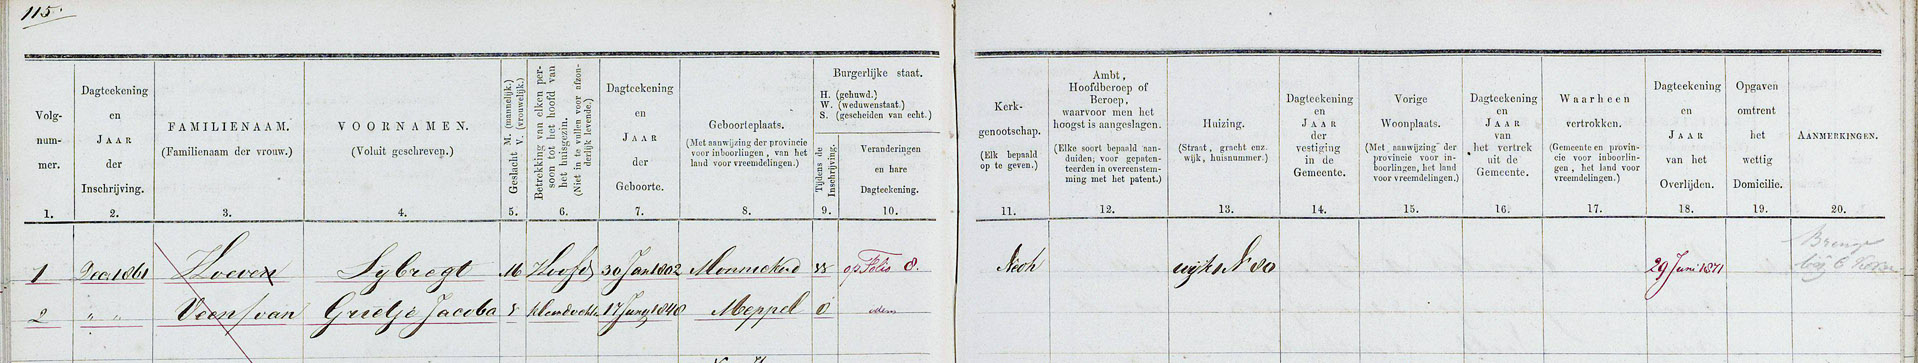 115.
Volg-
num-
mer.
1.
Dagteekening
en
JAAR
der
Inschrijving.
2.
FAMILIENAAM.
(Familienaam der vrouw.)
3.
VOORNAMEN.
(Voluit geschreven.)
4.
Geslacht M. (mannelijk.)
V. (vrouwelijk.)
5.
Betrekking van elken per-
soon tot het hoofd van
het huisgezin.
(Niet in te vullen voor afzon-
derlijk levende.)
6.
Dagteekening
en
JAAR
der
Geboorte.
7.
Geboorteplaats.
(Met aanwijzing der provincie
voor inboorlingen, van het
land voor vreemdelingen.)
8.
Burgerlijke staat.
H. (gehuwd.)
W. (weduwenstaat.)
S. (gescheiden van echt.)
Tijdens de
Inschrijving.
9.
Veranderingen
en hare
Dagteekening.
10.
Kerk-
genootschap.
(Elk bepaald
op te geven.)
11.
Ambt,
Hoofdberoep of
Beroep,
waarvoor men het
hoogst is aangeslagen.
(Elke soort bepaald aan-
duiden; voor gepaten-
teerden in overeenstem-
ming met het patent.)
12.
Huizing.
(Straat, gracht enz.
wijk, huisnummer.)
13.
Dagteekening
en
JAAR
der
vestiging
in de
Gemeente.
14.
Vorige
Woonplaats.
(Met aanwijzing der
provincie voor in-
boorlingen, het land
voor vreemdelingen.)
15.
Dagteekening
en
JAAR
van
het vertrek
uit de
Gemeente.
16.
Waarheen
vertrokken.
(Gemeente en provin-
cie voor inboorlin-
gen, het land voor
vreemdelingen.)
17.
Dagteekening
en
JAAR
van het
Overlijden.
18.
Opgaven
omtrent
het
wettig
Domicilie.
19.
AANMERKINGEN.
20.
1 Dec 1861 Hoeven Sybregt Hoofd 30 Jan 1802 op Folio 8. Neêh wijk N 80 29 Juni 1871
2 " " Veen / van Grietje Jacoba kleindochter 17 1848 Meppel 0 idem